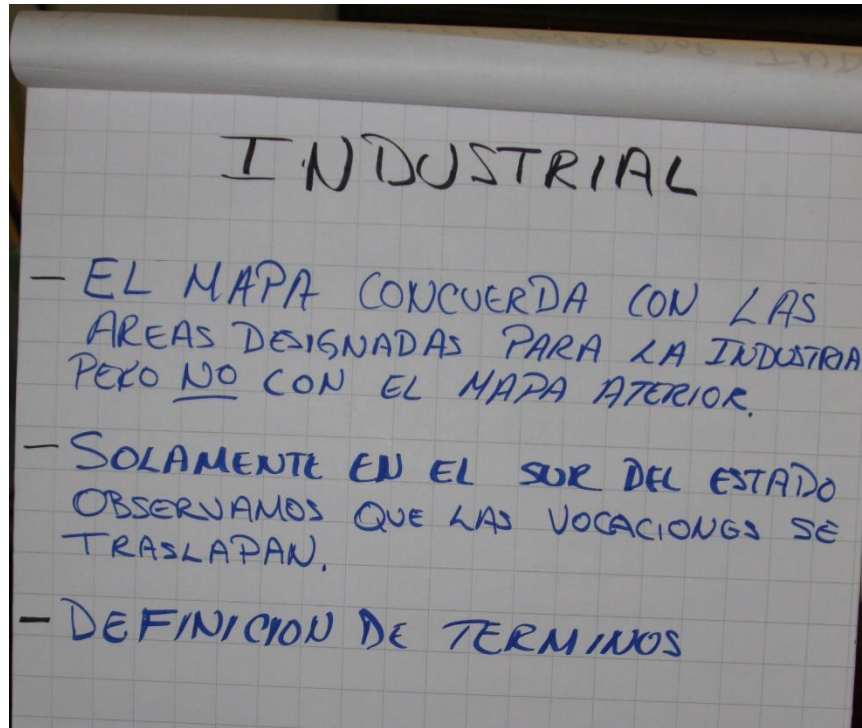 INDUSTRIAL
- EL MAPA CONCUERDA CON LAS
AREAS DESIGNADAS PARA LA INDUSTRIA
PERO NO CON EL MAPA ATERIOR.
- SOLAMENTE EN EL SUR DEL ESTADO
OBSERVAMOS QUE LAS VOCACIONES SE
TRASLAPAN.
- DEFINICION DE TERMINOS